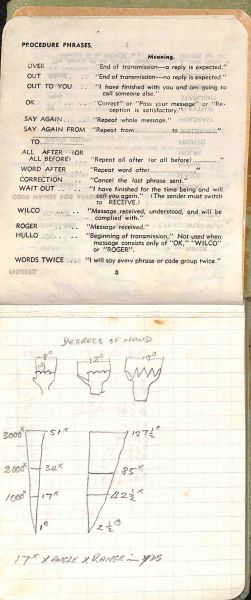 PROCEDURE PHRASES.
Meaning.
OVER .. .. .. "End of transmission—a reply is expected."
OUT .. .. .. "End of transmission—no reply is expected."
OUT TO YOU .. .. "I have finished with you and am going to
call someone else."
OK .. .. .. "Correct" or "Pass your message" or "Re-
ception is satisfactory."
SAY AGAIN .. .. "Repeat whole message."
SAY AGAIN FROM "Repeat from ........ to ........"
TO........
ALL AFTER (OR
ALL BEFORE) .. "Repeat all after (or all before) ........"
WORD AFTER .. "Repeat word after ........"
CORRECTION .. "Cancel the last phrase sent."
WAIT OUT .. .. "I have finished for the time being and will
call you again." (The sender must switch
to RECEIVE.)
WILCO .. .. "Message received, understood, and will be
complied with."
ROGER .. .. "Message received."
HULLO .. .. "Beginning of transmission." Not used when
message consists only of "OK," "WILCO"
or "ROGER".
WORDS TWICE .. "I will say every phrase or code group twice."
8
DEGREES OF HAND
8° 12° 19°
3000ˣ 51ˣ 127½ˣ
2000ˣ 34ˣ 85ˣ
1000ˣ 17ˣ 42½ˣ
1° 2½°
17ˣ x ANGLE x RANGE in YDS